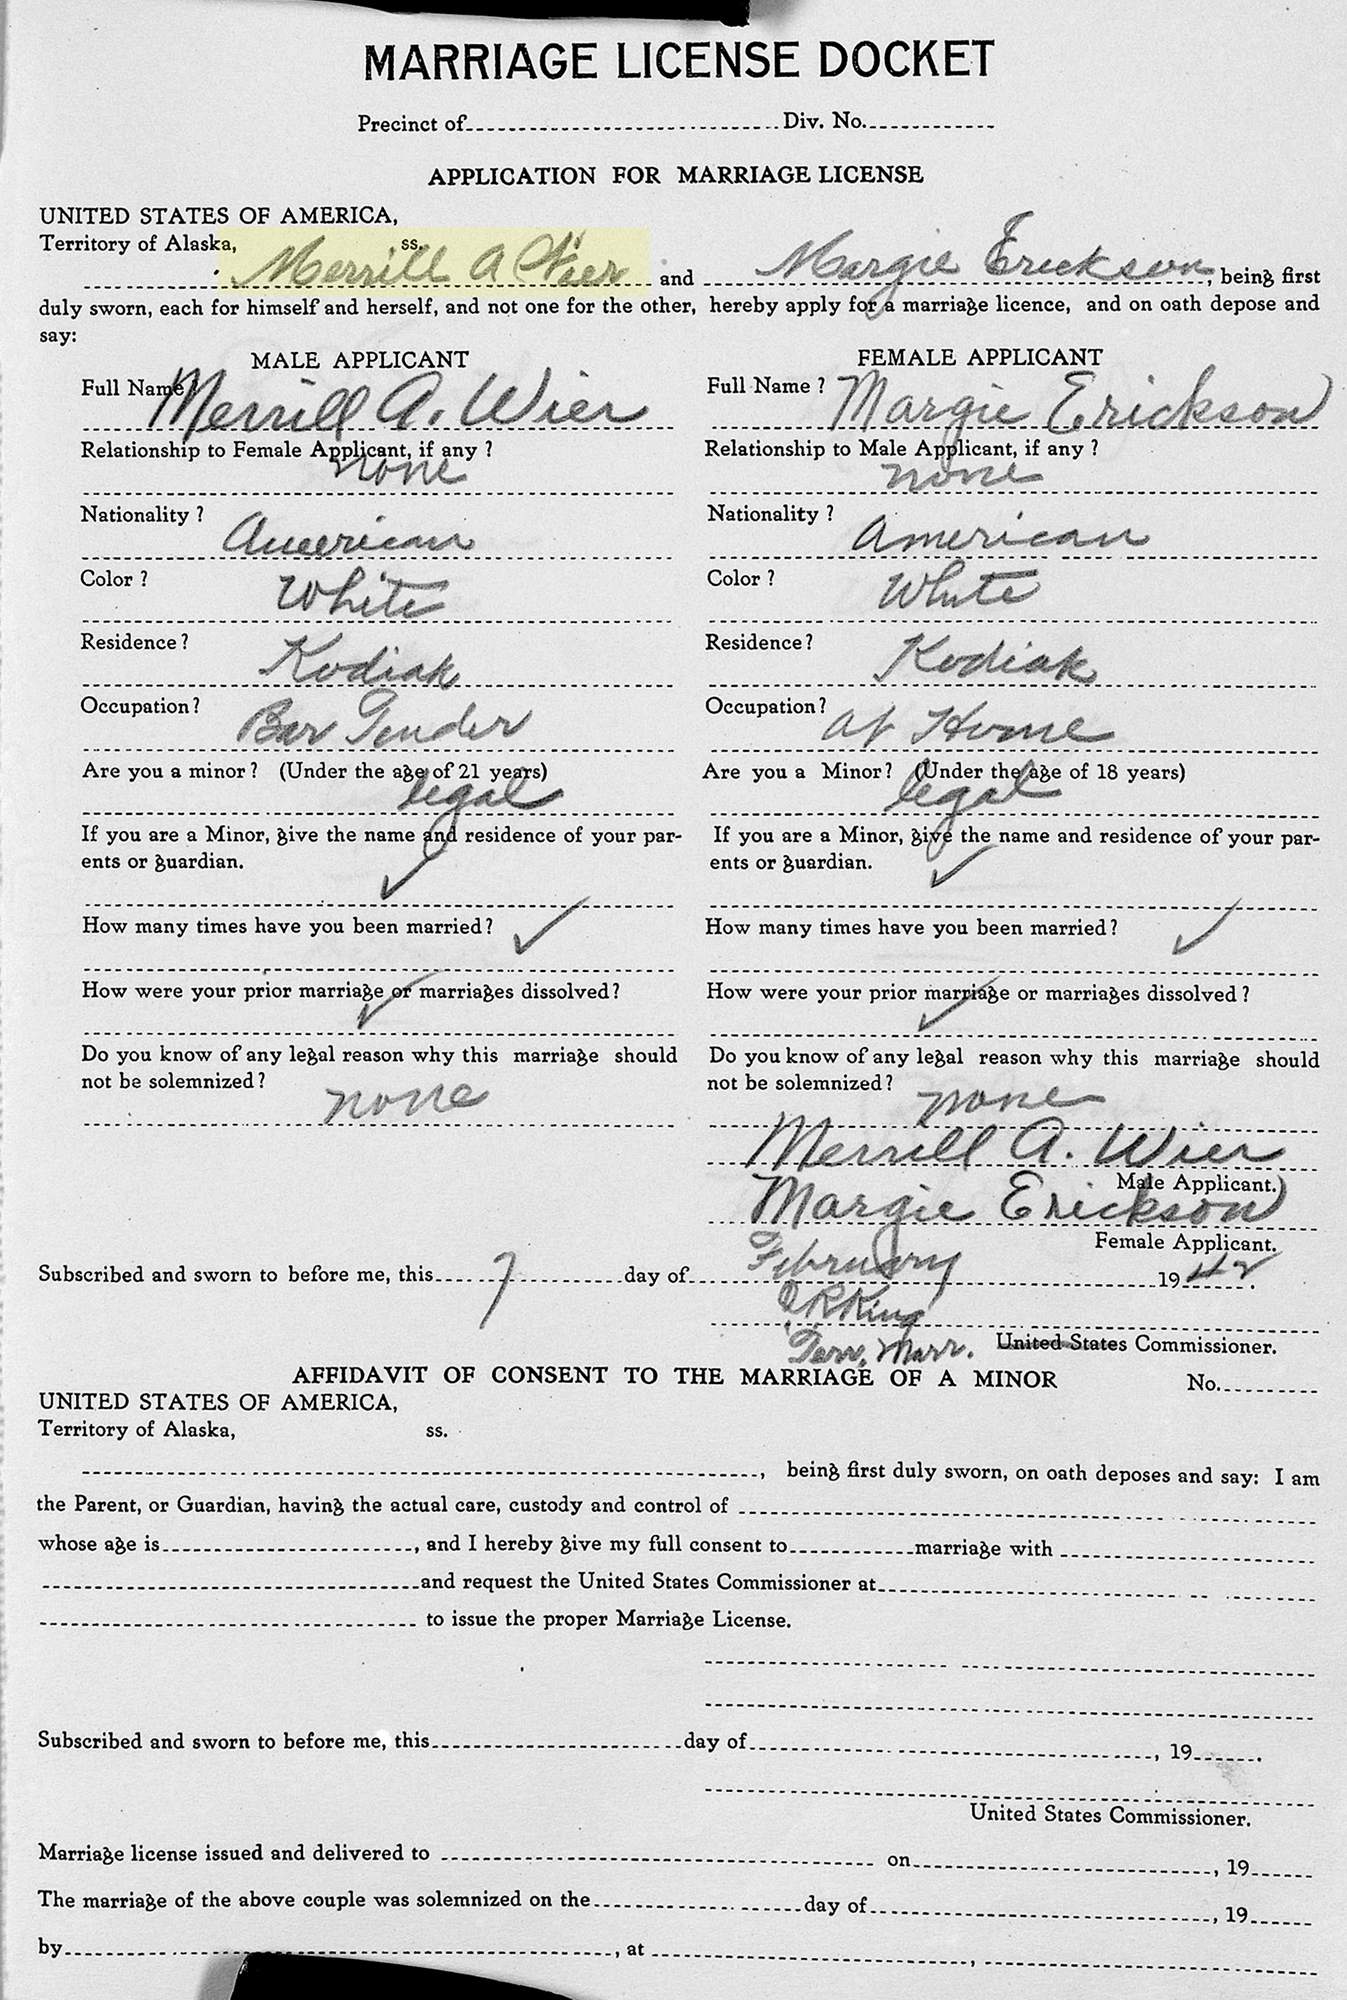 MARRIAGE LICENSE DOCKET
Precinct of Div. No.
APPLICATION FOR MARRIAGE LICENSE
UNITED STATES OF AMERICA,
Territory of Alaska, ss.
Merrill A Wier and Margie Erickson, being first
duly sworn, each for himself and herself, and not one for the other, hereby apply for a marriage licence, and on oath depose and
say:
MALE APPLICANT
Full Name? Merrill A. Wier
Relationship to Female Applicant, if any?
none
Nationality?
American
Color?
White
Residence?
Kodiak
Occupation?
Bar Tender
Are you a minor? (Under the age of 21 years)
legal
If you are a Minor, give the name and residence of your par-
ents or guardian.
✓
How many times have you been married? ✓
How were your prior marriage or marriages dissolved?
✓
Do you know of any legal reason why this marriage should
not be solemnized?
none
FEMALE APPLICANT
Full Name? Margie Erickson
Relationship to Male Applicant, if any?
none
Nationality?
American
Color?
White
Residence?
Kodiak
Occupation?
at Home
Are you a Minor? (Under the age of 18 years)
legal
If you are a Minor, give the name and residence of your par-
ents or guardian.
✓
How many times have you been married? ✓
How were your prior marriage or marriages dissolved?
✓
Do you know of any legal reason why this marriage should
not be solemnized?
none
Merrill A. Wier
Male Applicant.
Margie Erickson
Female Applicant.
Subscribed and sworn to before me, this 7 day of February 1942.
King
Terr. Marr. United States Commissioner.
AFFIDAVIT OF CONSENT TO THE MARRIAGE OF A MINOR No.
UNITED STATES OF AMERICA,
Territory of Alaska, ss.
, being first duly sworn, on oath deposes and say: I am
the Parent, or Guardian, having the actual care, custody and control of
whose age is , and I hereby give my full consent to marriage with
and request the United States Commissioner at
to issue the proper Marriage License.
Subscribed and sworn to before me, this day of , 19 .
United States Commissioner.
Marriage license issued and delivered to on , 19
The marriage of the above couple was solemnized on the day of , 19
by , at ,